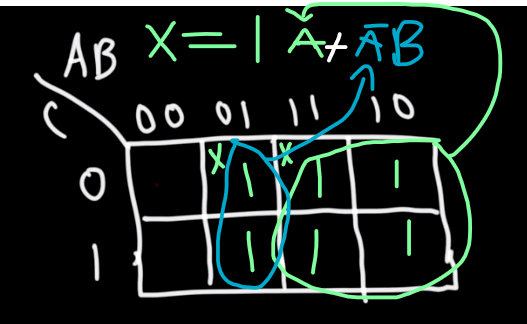 X=1 A+ĀB
AB
C
00 01 11 10
0 X1 X1 1
1 1 1 1